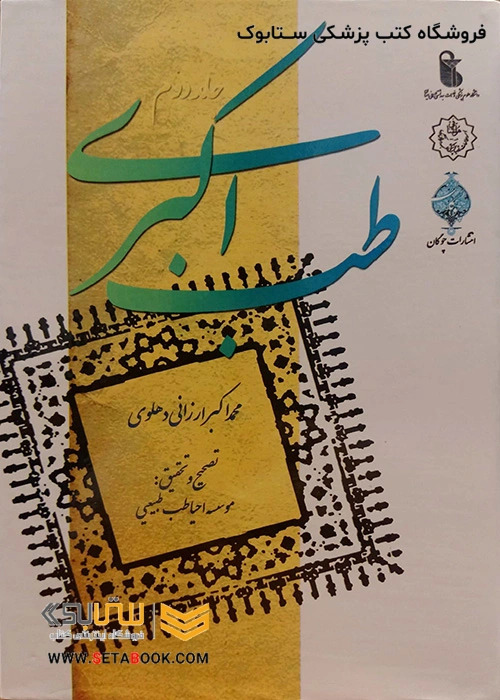 فروشگاه کتب پزشکی ستابوک
جلد دوم
طب اکبری
انتشارات چوگان
محمد اکبر ارزانی دهلوی
تصحیح و تحقیق:
موسسه احیا طب طبیعی
ستابوک
فروشگاه اینترنتی کتاب
WWW.SETABOOK.COM